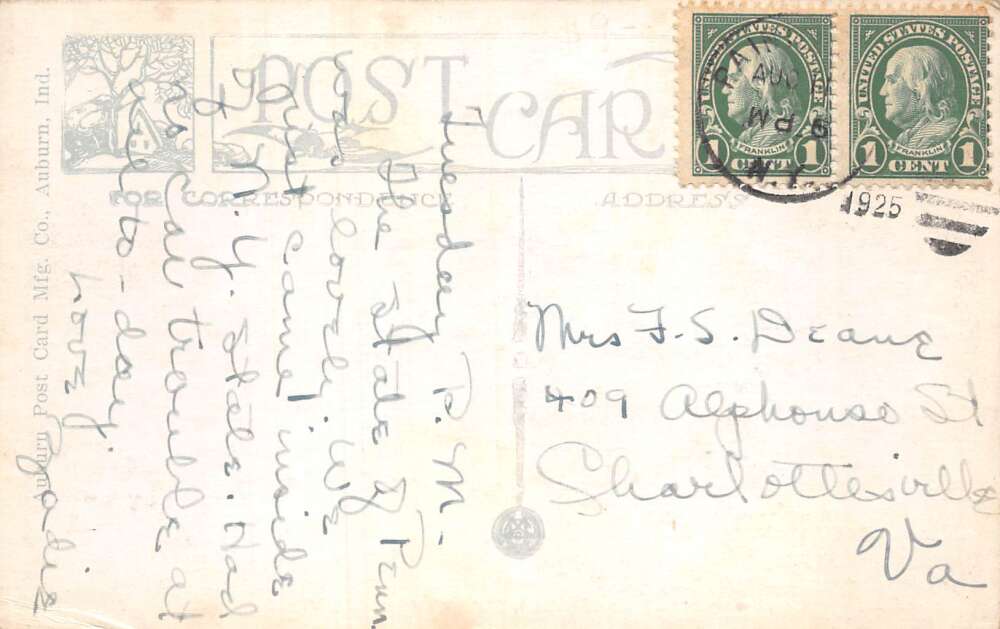 POST CARD
FOR CORRESPONDENCE
ADDRESS
Auburn Post Card Mfg. Co., Auburn, Ind.
Tuesday P. M.
The State of Penn.
was lovely. We
just came inside
of N. Y. State. Had
no car trouble at
all to-day.
Love
UNITED STATES POSTAGE
FRANKLIN
1 CENT 1
UNITED STATES POSTAGE
FRANKLIN
1 CENT 1
AUG
PM
N.Y.
1925
Mrs F. S. Deane
409 Alphonso St
Charlottesville
Va